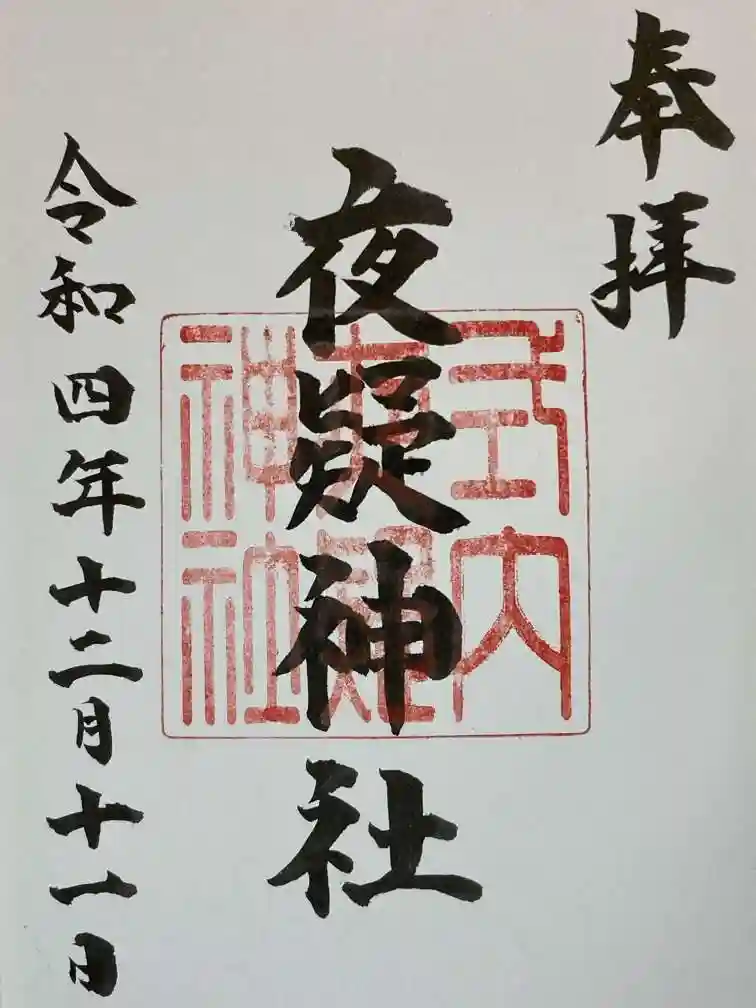 奉拝
式内
夜疑神社
神社
令和四年十二月十一日